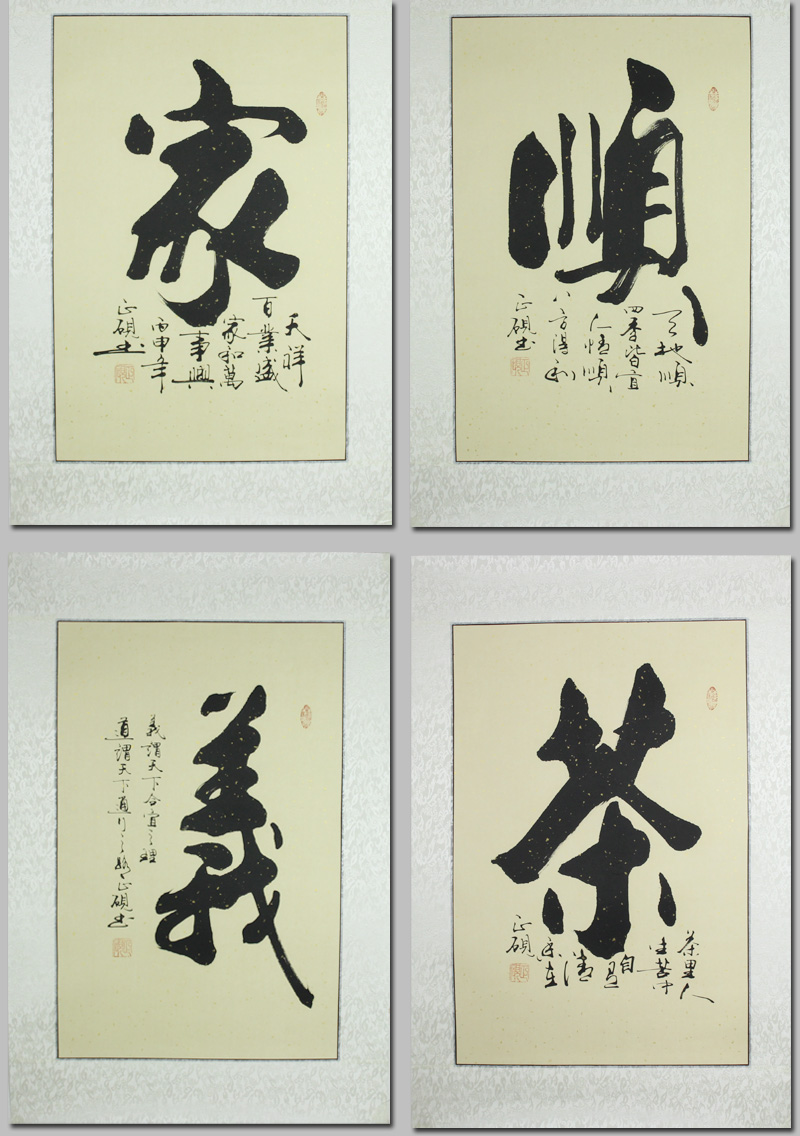 家
天祥
百業盛
家和萬
事興
丙申年
正硯书
順
天地順
四季皆宜
人情順
八方得利
正硯书
義
義謂天下合宜之理
道謂天下通行之路 正硯书
茶
茶里人
生苦中
自有
清
香在
正硯